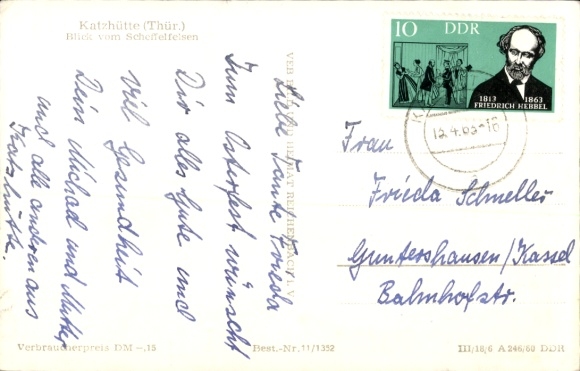 Katzhütte (Thür.)
Blick vom Scheffelfelsen
Liebe Tante Frieda
Zum Osterfest wünscht
Dir alles Gute und
viel Gesundheit
Dein Michael und Mutter
und alle anderen aus
Katzhütte.
VEB BILD UND HEIMAT REICHENBACH I. V.
10 DDR
1813 1863
FRIEDRICH HEBBEL
12.4.63-18
Frau
Frieda Schmeller
Guntershausen/Kassel
Bahnhofstr.
Verbraucherpreis DM –,15
Best.-Nr. 11/1352
III/18/6 A 246/60 DDR